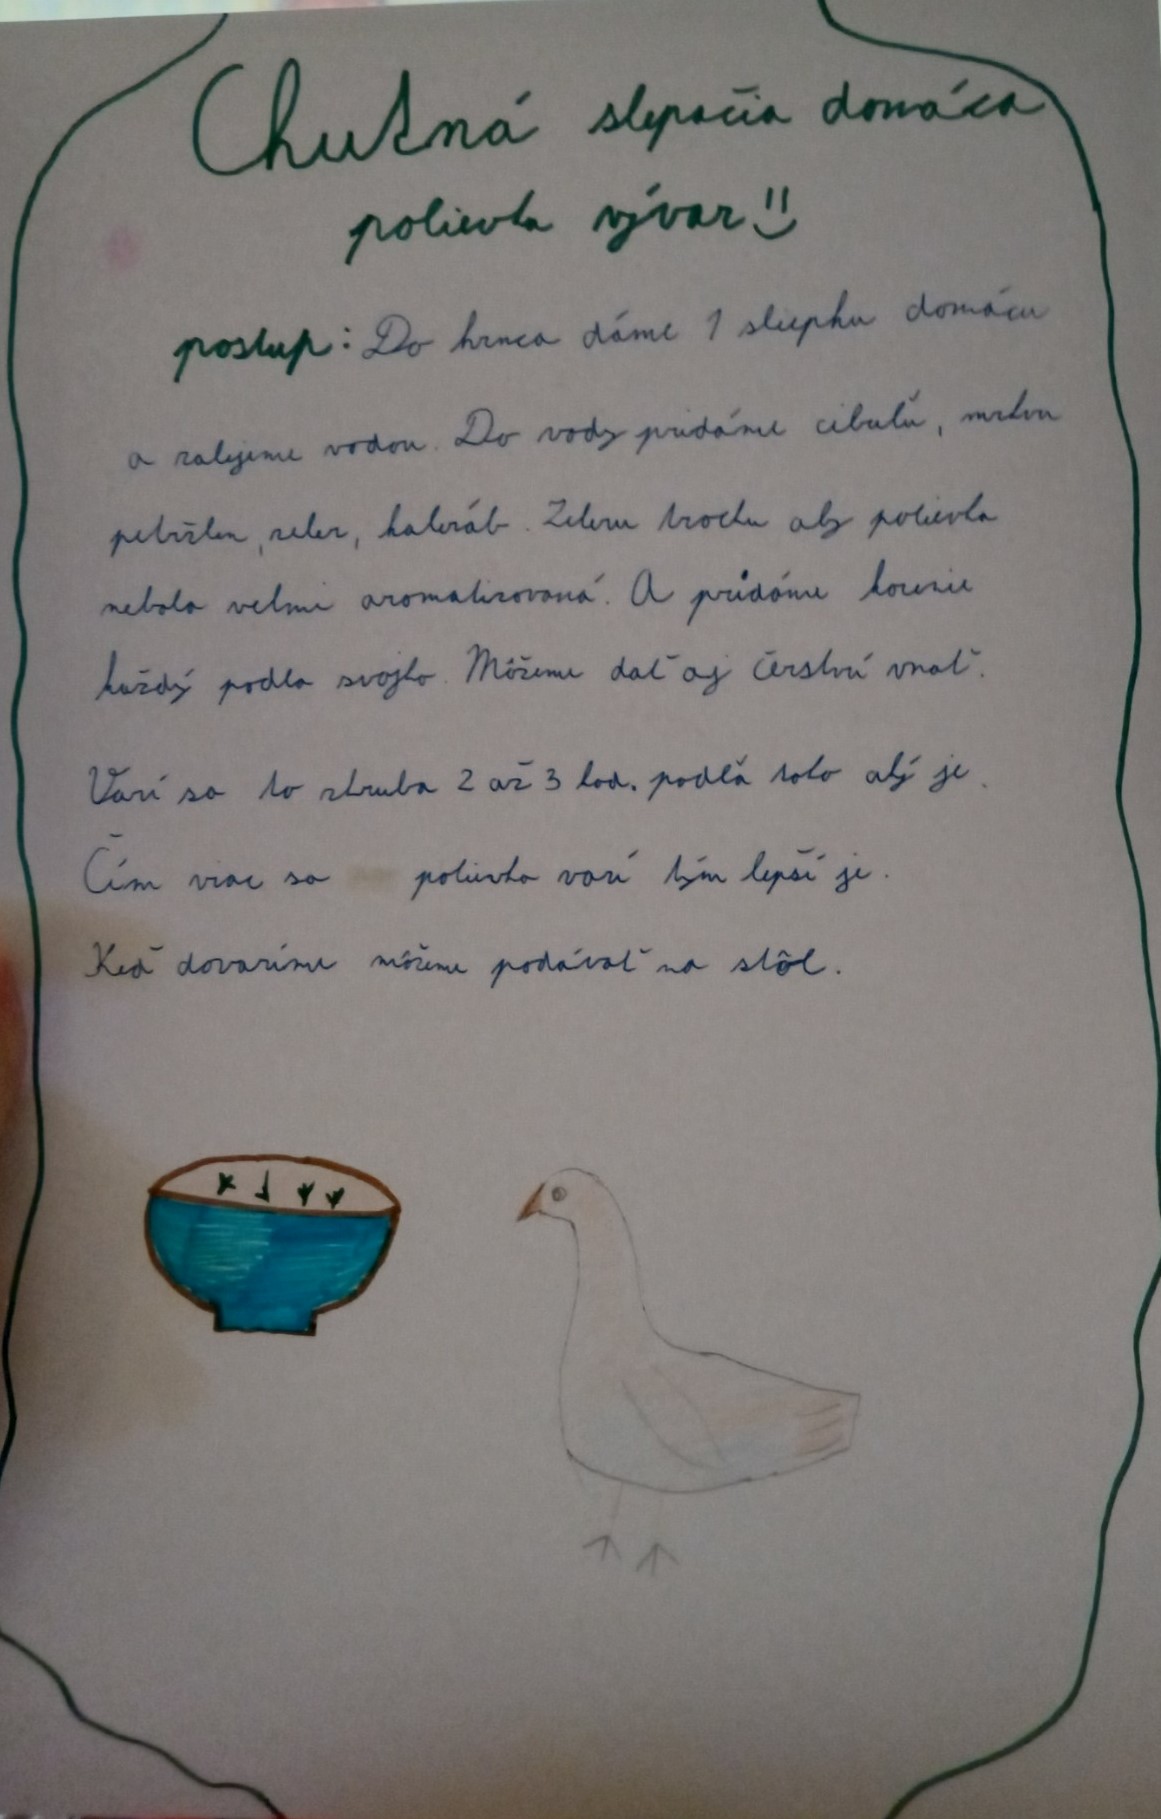 Chutná slepačia domáca
polievka vývar
postup: Do hrnca dáme 1 sliepku domácu
a zalejeme vodou. Do vody pridáme cibuľu, mrkvu
petržlen, zeler, kaleráb. Zeleru trochu aby polievka
nebola velmi aromatizovaná. A pridáme korenie
každý podla svojho. Môžeme dať aj čerstvú vnať.
Varí sa to zhruba 2 až 3 hod. podľa toho aký je.
Čím viac sa polievka varí tým lepší je.
Keď dovaríme môžeme podávať na stôl.